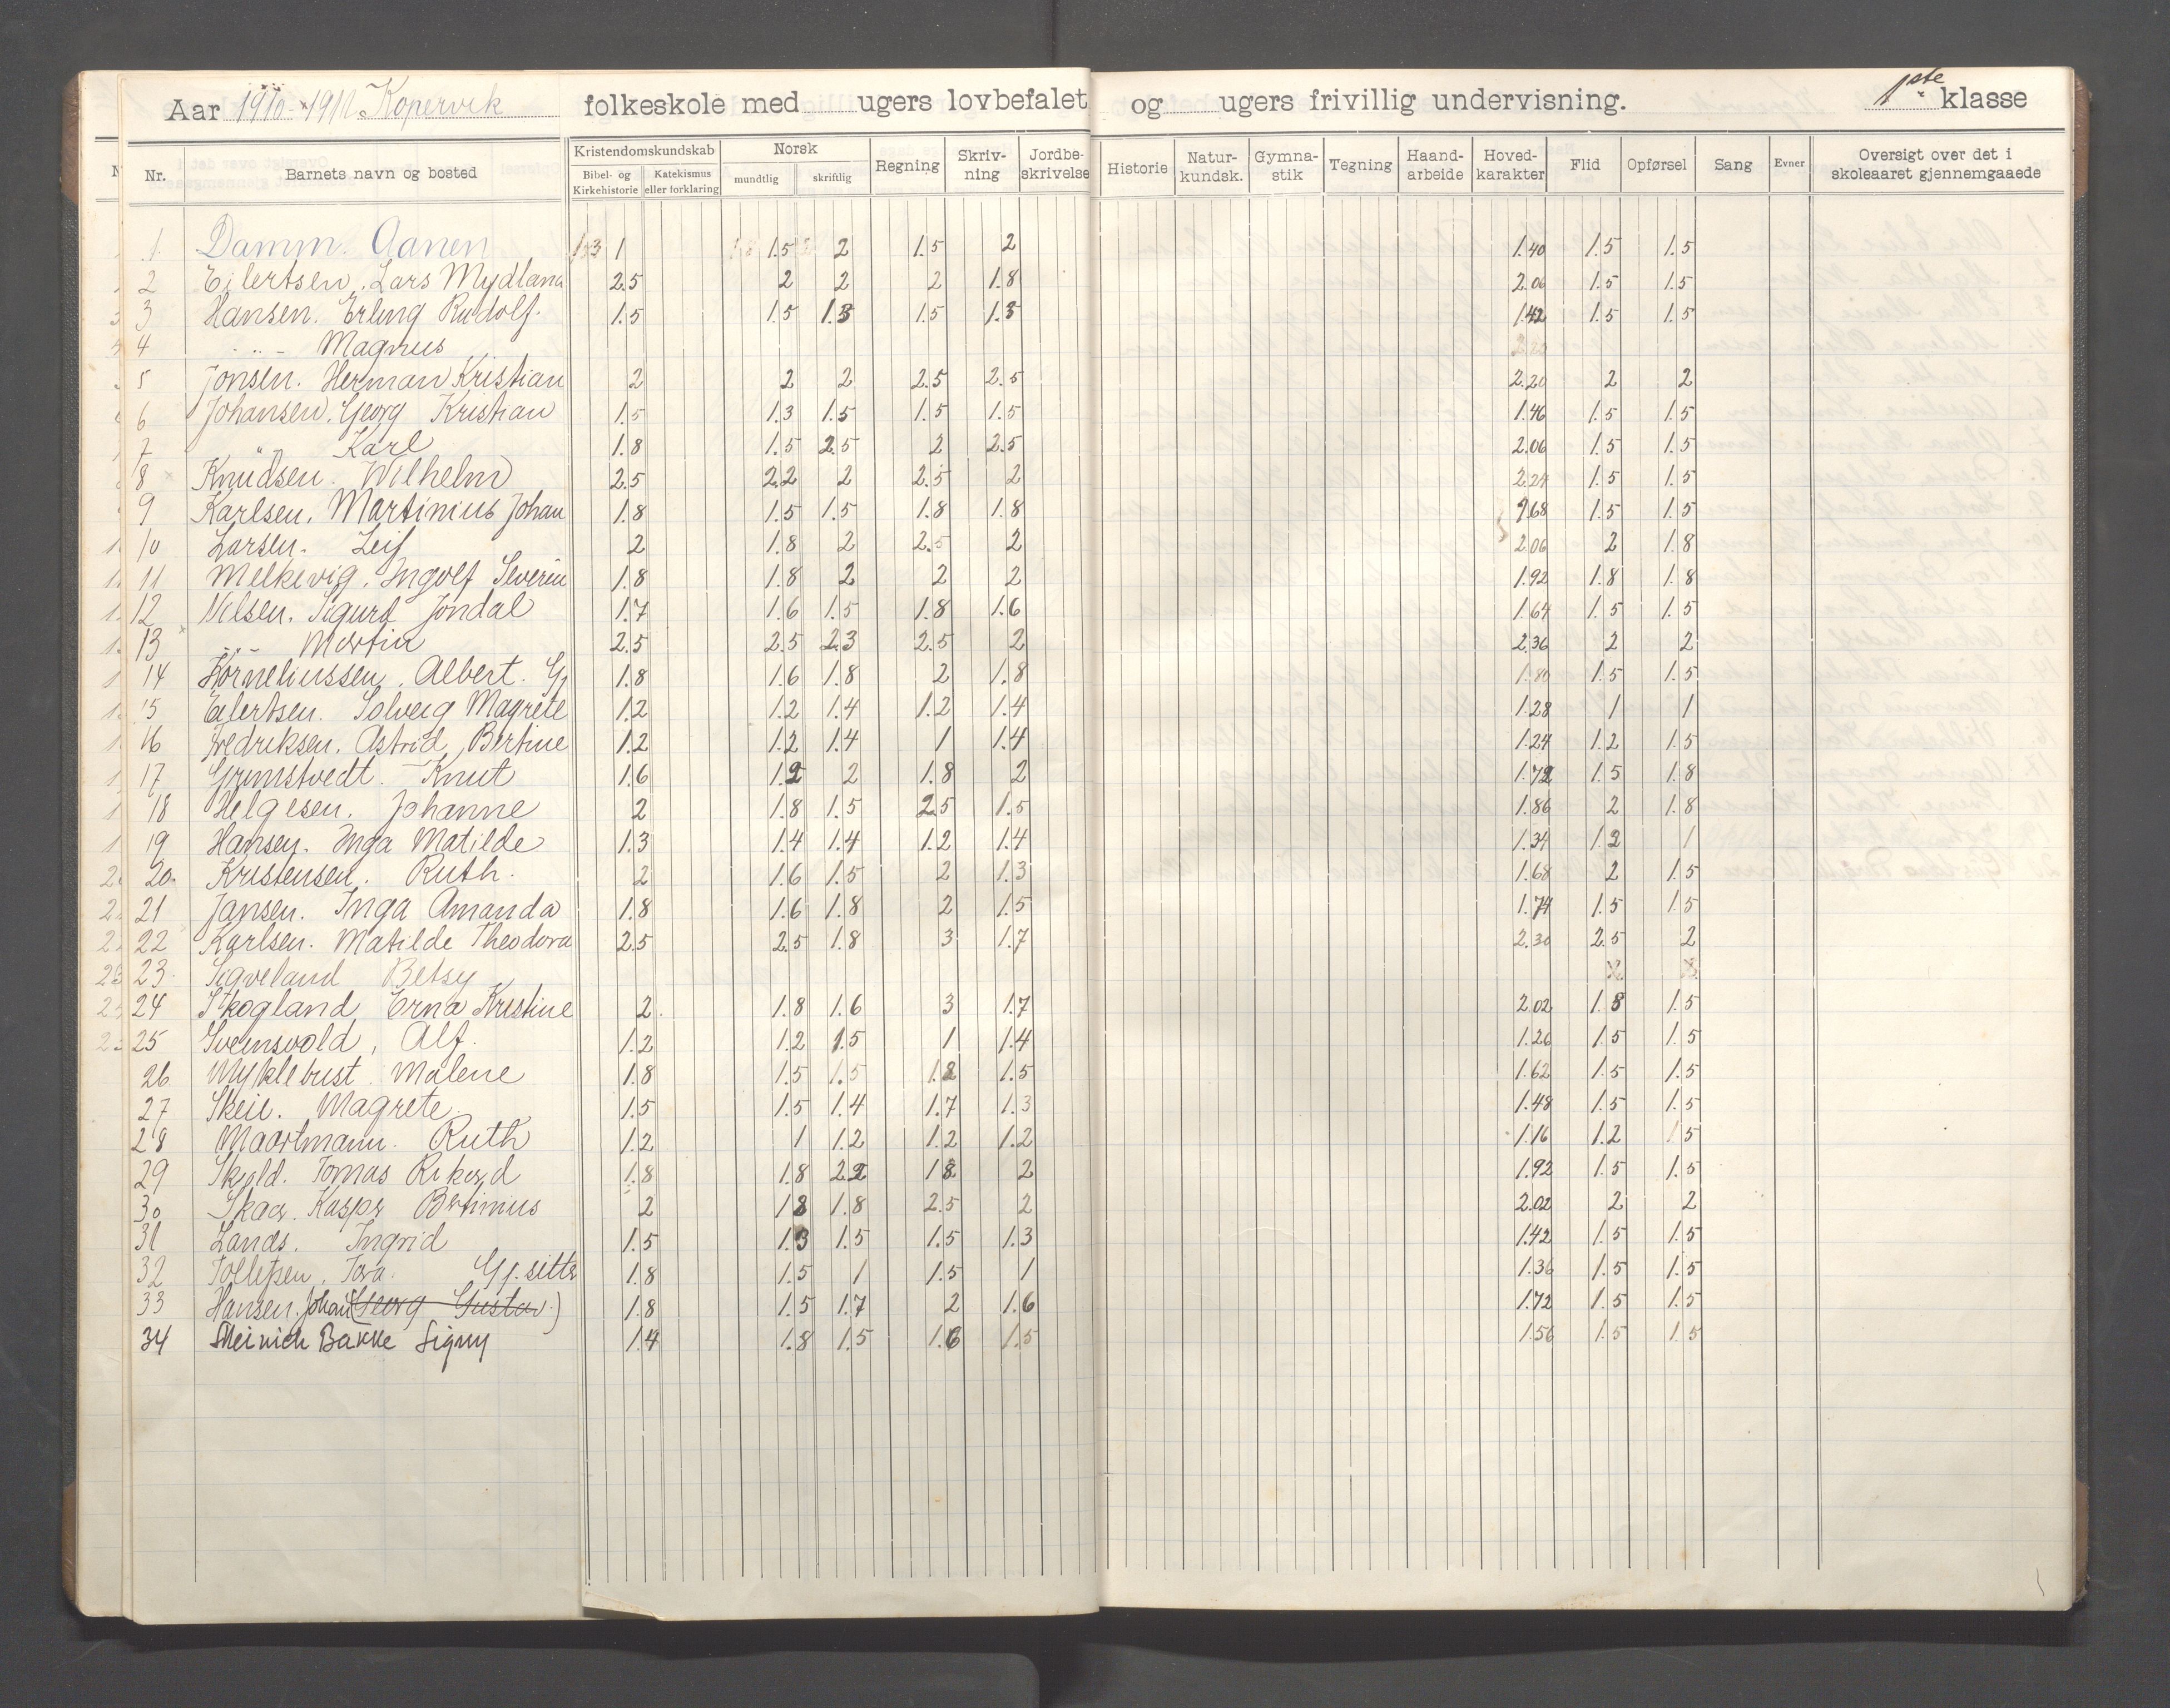 Aar 1910-1911 Kopervik folkeskole med ugers lovbefalet og ugers frivillig undervisning. 1ste klasse
Nr. Barnets navn og bosted Kristendomskundskab Bibel- og Kirkehistorie Katekismus eller forklaring Norsk mundtlig skriftlig Regning Skriv-ning Jordbe-skrivelse Historie Natur-kundsk. Gymna-stik Tegning Haand-arbeide Hoved-karakter Flid Opførsel Sang Evner Oversigt over det i skoleaaret gjennemgaaede
1. Damm. Aanen 1 1.5 2 1.5 2 1.40 1.5 1.5
2 Eilertsen, Lars Mydland 2.5 2 2 2 1.8 2.06 1.5 1.5
3 Hansen. Erling Rudolf. 1.5 1.5 1.3 1.5 1.3 1.42 1.5 1.5
4 - " - Magnus
5 Jonsen. Herman Kristian 2 2 2 2.5 2.5 2.20 2 2
6 Johansen, Georg Kristian 1.5 1.3 1.5 1.5 1.5 1.46 1.5 1.5
7 " Karl 1.8 1.5 2.5 2 2.5 2.06 1.5 1.5
8 Knudsen. Wilhelm 2.5 2.2 2 2.5 2 2.24 1.5 1.5
9 Karlsen. Martinius Johan 1.8 1.5 1.5 1.8 1.8 1.68 1.5 1.5
10 Larsen. Leif 2 1.8 2 2.5 2 2.06 2 1.8
11 Melkevig, Ingolf Severin 1.8 1.8 2 2 2 1.92 1.8 1.8
12 Nilsen. Sigurd Jondal 1.7 1.6 1.5 1.8 1.6 1.64 1.5 1.5
13 - " - Martin 2.5 2.5 2.3 2.5 2 2.36 2 2
14 Korneliussen, Albert. Gj 1.8 1.6 1.8 2 1.8 1.80 1.5 1.5
15 Eilertsen. Solveig Magrete 1.2 1.2 1.4 1.2 1.4 1.28 1 1
16 Fredriksen. Astrid Bertine 1.2 1.2 1.4 1 1.4 1.24 1.2 1.5
17 Grimstvedt. Knut 1.6 1.2 2 1.8 2 1.72 1.5 1.8
18 Helgesen. Johanne 2 1.8 1.5 2.5 1.5 1.86 2 1.8
19 Hansen. Inga Matilde 1.3 1.4 1.4 1.2 1.4 1.34 1.2 1
20. Kristensen. Ruth. 2 1.6 1.5 2 1.3 1.68 2 1.5
21 Jansen. Inga Amanda 1.8 1.6 1.8 2 1.5 1.74 1.5 1.5
22 Karlsen. Matilde Theodora 2.5 2.5 1.8 3 1.7 2.30 2.5 2
23. Sigveland Betsy
24 Skogland Erna Kristine 2 1.8 1.6 3 1.7 2.02 1.8 1.5
25 Sveinsvold, Alf. 1.2 1.2 1.5 1 1.4 1.26 1.5 1.5
26 Myklebust. Malene 1.8 1.5 1.5 1.8 1.5 1.62 1.5 1.5
27 Skeie. Magrete. 1.5 1.5 1.4 1.7 1.3 1.48 1.5 1.5
28 Maartmann. Ruth 1.2 1 1.2 1.2 1.2 1.16 1.2 1.5
29 Skold. Tomas Rikard 1.8 1.8 2.2 1.8 2 1.92 1.5 1.5
30 Skaar. Kaspar Bertinius 2 1.8 1.8 2.5 2 2.02 2 2
31 Lands. Ingrid 1.5 1.3 1.5 1.5 1.3 1.42 1.5 1.5
32 Tollefsen, Tora. Gj. sitter 1.8 1.5 1 1.5 1 1.36 1.5 1.5
33 Hansen. Johan (Georg Gustav.) 1.8 1.5 1.7 2 1.6 1.72 1.5 1.5
34 Meinich Bakke Signy 1.4 1.8 1.5 1.6 1.5 1.56 1.5 1.5